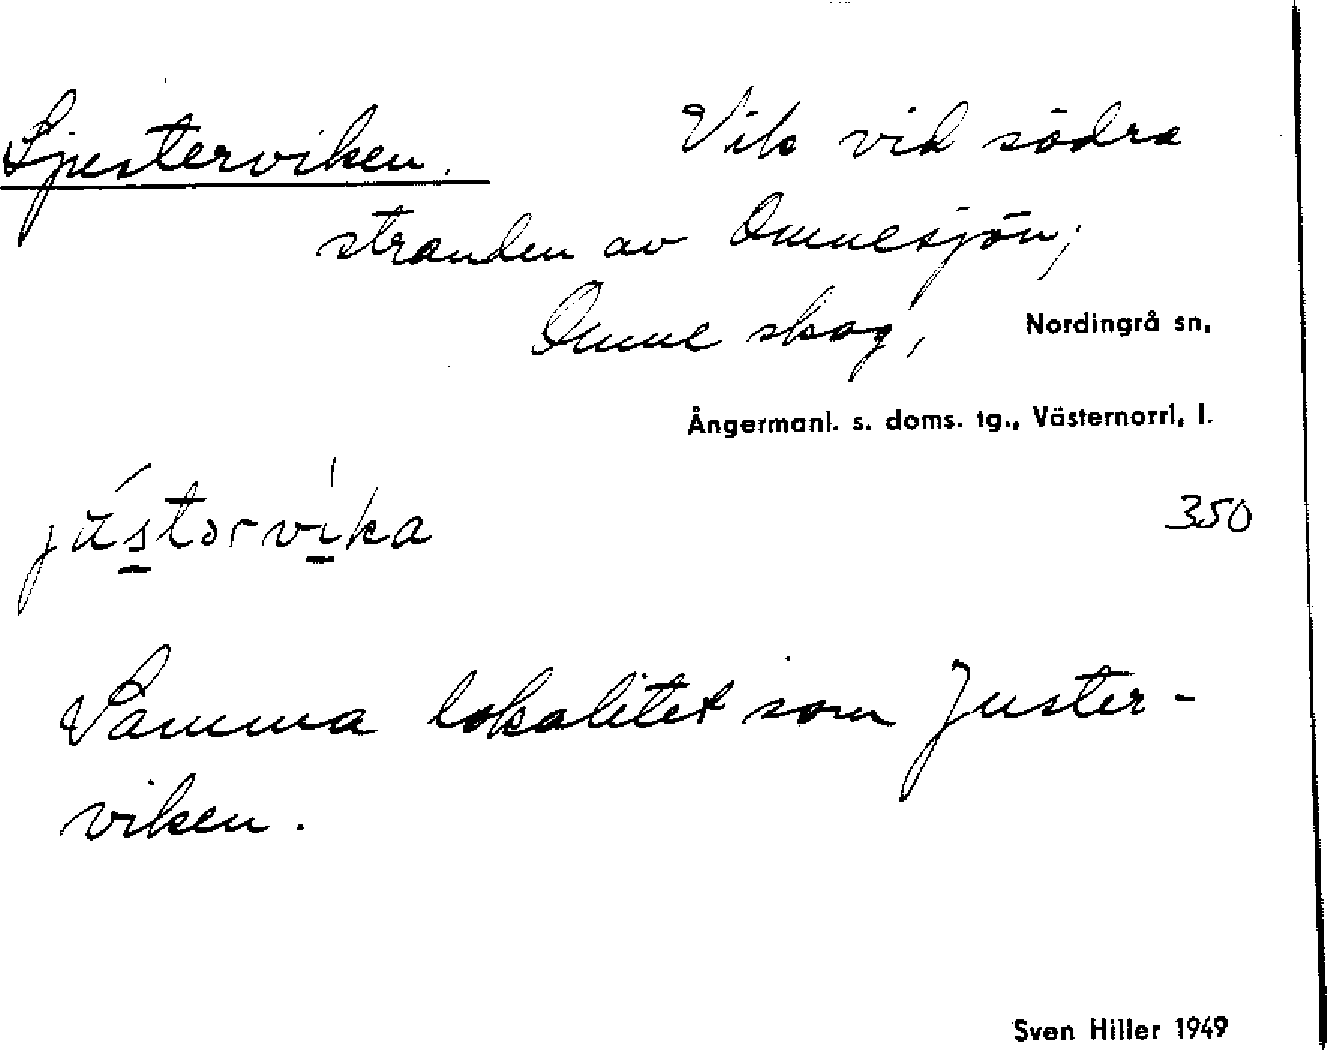 Ljusterviken. Vik vid södra
stranden av Omnesjön;
Omne skog, Nordingrå sn,
Ångermanl. s. doms. tg., Västernorrl. l.
jús̲tərví̲ka 350
Samma lokalitet som Juster-
viken.
Sven Hiller 1949